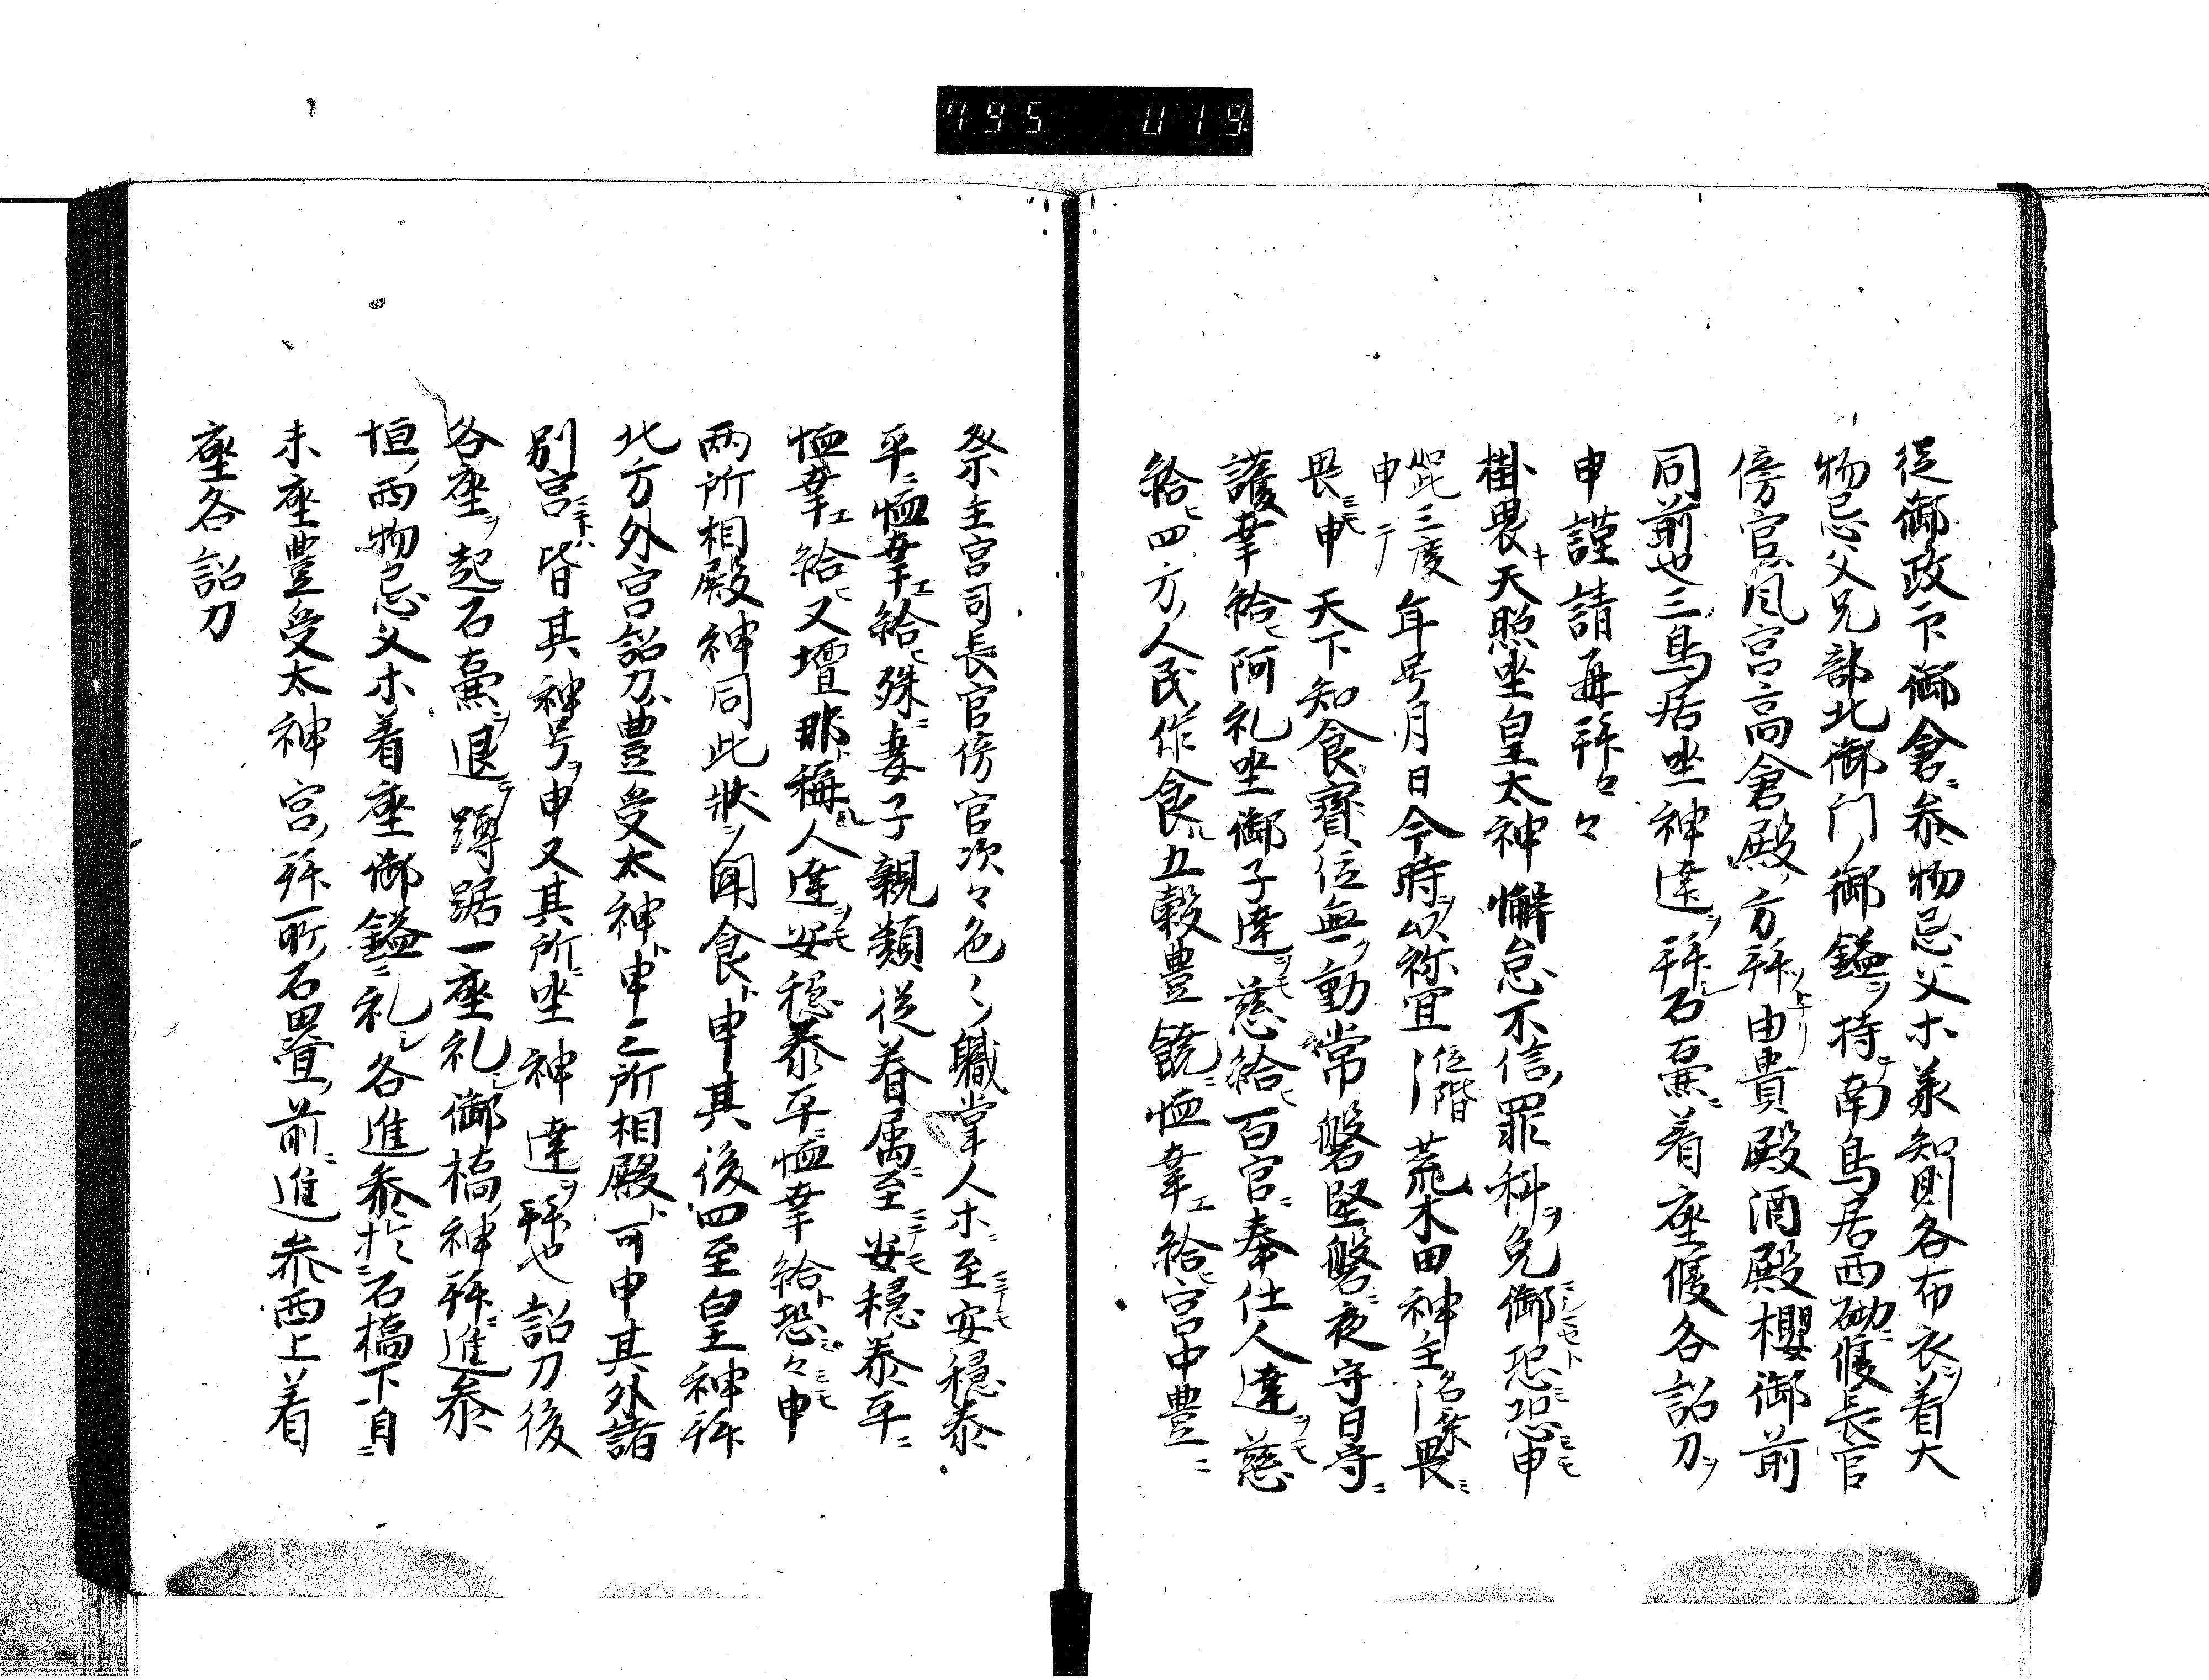 795 019
従御政下御倉ニ参物忌父ホ兼知則各布衣ヲ着大
物忌父兄部北御門ノ御鎰ヲ持テ南鳥居西砌ニ候長官
傍官風宮高倉殿ノ方拝ヨリ由貴殿酒殿櫻御前
同前也三鳥居坐神達ヲ拝シ石壷ニ着座候各詔刀ヲ
申謹請再拝々々
掛畏キ天照坐皇太神懈怠不信ノ罪科ヲ免御セト恐ミ恐ミモ申
此三度申テ年号月日今時ヲ以祢宜位階荒木田神主名乗畏ミ
畏ミモ申天下知食寳位無ク動常磐堅磐ニ夜守日守ニ
護幸給ヒ阿礼坐御子達ヲモ慈給ヒ百官ニ奉仕人達ヲモ慈
給ヒ四方ノ人民作食ル五穀豊饒ニ恤幸エ給ヒ宮中豊ニ
祭主宮司長官傍官次々色々ノ職掌人ホニ至ニテモ安穏泰
平ニ恤幸エ給ヒ殊ニ妻子親類従眷属ニ至ニテモ安穏泰平ニ
恤幸エ給ヒ又壇那ト稱ル人達ヲモ安穏泰平ニ恤幸給ト恐ミ々ミモ申
両所相殿神同此状ヲ聞食ト申其後四至皇神拝
北方外宮詔刀ハ豊受太神ト申三所相殿ト可申其外諸
別宮ニハ皆其神号ヲ申又其所ニ坐神達ヲ拝也詔刀後
各座ヲ起石壷ヲ退ニ蹲踞一座礼シ御橋ノ神拝ニ進参
恒ノ両物忌父ホ着座御鎰ニ礼シ各進参於ニ石橋下自ニ
未座豊受太神宮ノ拝所ノ石畳ノ前ニ進参西上ニ着
座各詔刀